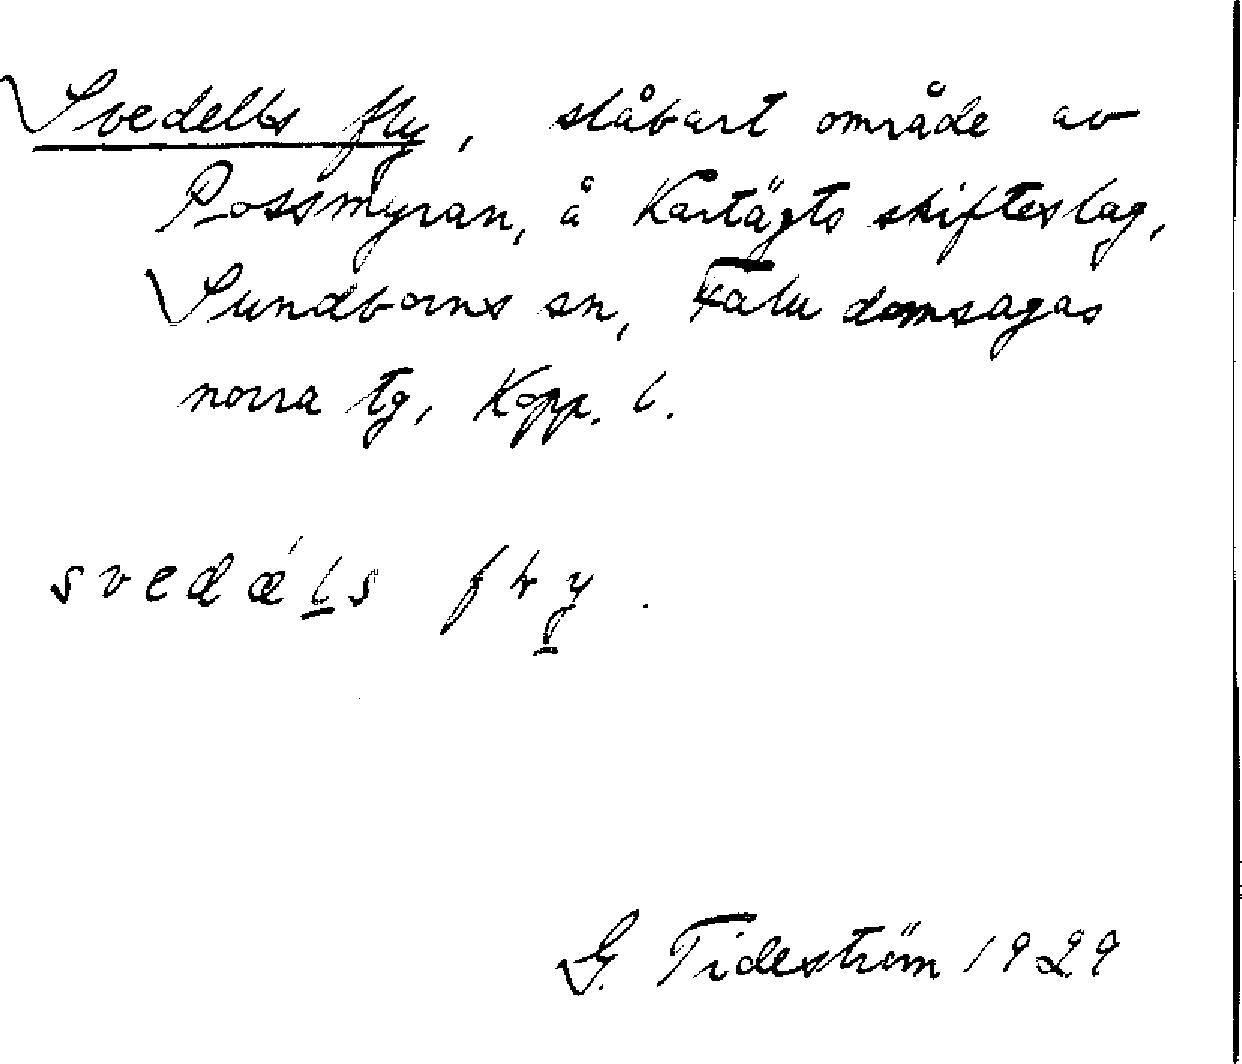 Svedells fly, slåbart område av
Rossmyran, å Kartägts skifteslag,
Sundborns sn, Falu domsagas
norra tg, Kopp. l.
svedǽl̲s fɫy̲.
G. Tideström 1929